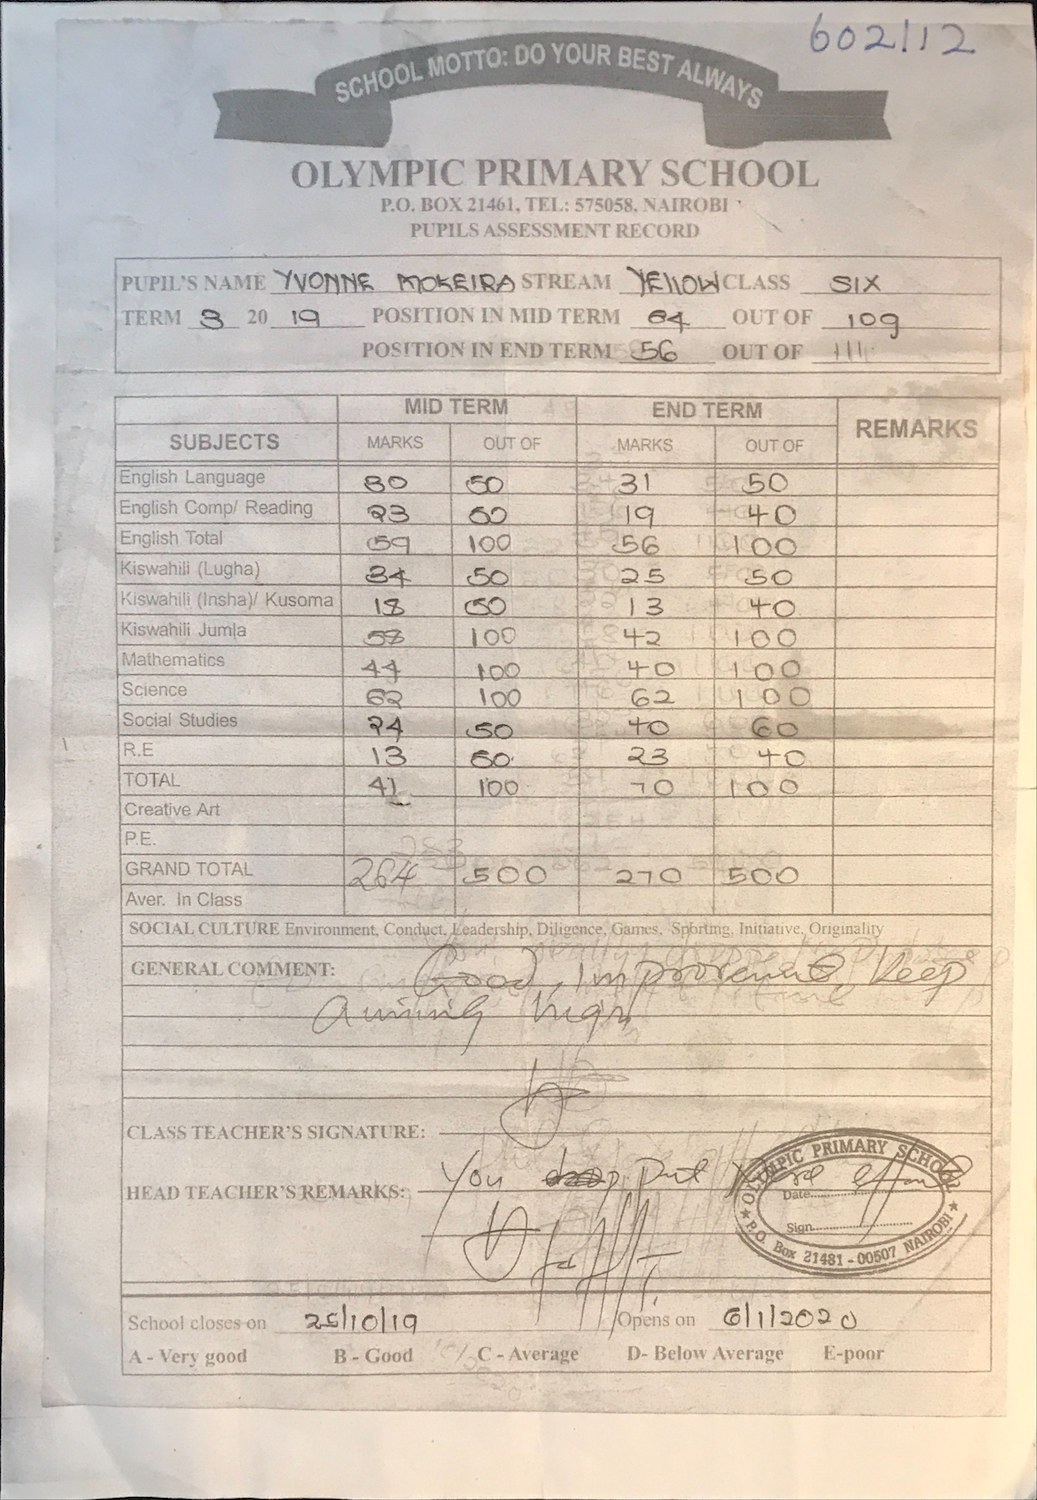 602/12
SCHOOL MOTTO: DO YOUR BEST ALWAYS
OLYMPIC PRIMARY SCHOOL
P.O. BOX 21461, TEL: 575058, NAIROBI
PUPILS ASSESSMENT RECORD
PUPIL'S NAME YVONNE MOKEIRA STREAM YELLOW CLASS SIX
TERM 3 20 19 POSITION IN MID TERM 64 OUT OF 109
POSITION IN END TERM 56 OUT OF 111
MID TERM END TERM REMARKS
SUBJECTS MARKS OUT OF MARKS OUT OF
English Language 30 50 31 50
English Comp/ Reading 23 50 19 40
English Total 59 100 56 100
Kiswahili (Lugha) 34 50 25 50
Kiswahili (Insha)/ Kusoma 18 50 13 40
Kiswahili Jumla 58 100 42 100
Mathematics 44 100 40 100
Science 62 100 62 100
Social Studies 24 50 40 60
R.E 13 50 23 40
TOTAL 41 100 70 100
Creative Art
P.E.
GRAND TOTAL 264 500 270 500
Aver. In Class
SOCIAL CULTURE Environment, Conduct, Leadership, Diligence, Games, Sporting, Initiative, Originality
GENERAL COMMENT: Good, improvement, keep
aiming high
CLASS TEACHER'S SIGNATURE:
HEAD TEACHER'S REMARKS: You drop put more effort
OLYMPIC PRIMARY SCHOOL
Date
Sign
P.O. Box 21481 - 00507 NAIROBI
School closes on 25/10/19 Opens on 6/1/2020
A - Very good B - Good C - Average D- Below Average E-poor